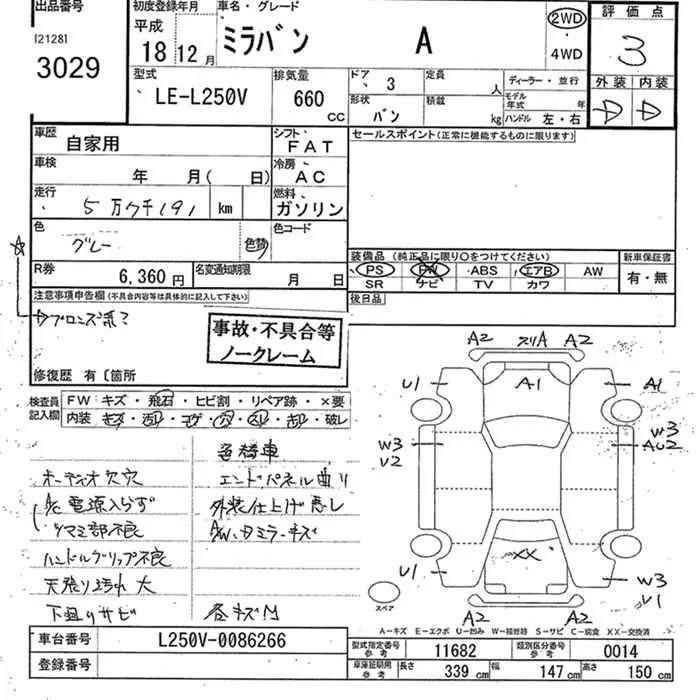 出品番号 初度登録年月 車名・グレード 評価点
[2128]
3029
平成
18 12月
ミラバン A
2WD
・
4WD
3
外装 内装
D D
型式 排気量 ドア 定員 ディーラー・並行
LE-L250V 660 CC 3 人 モデル年式 年
形状 積載
バン kg ハンドル 左・右
車歴 自家用 シフト FAT セールスポイント(正常に機能するものに限ります)
車検 年 月( 日) 冷房 AC
走行 5万 191 km 燃料 ガソリン
色 グレー 色替 色コード
R券 6,360円 名変通知期限 月 日
装備品(純正品に限り○をつけてください) 新車保証書
PS PW ・ABS エアB AW 有・無
SR ナビ TV カワ
後日品
注意事項申告欄(不具合内容等は具体的に記入して下さい)
ブロンズ系?
事故・不具合等
ノークレーム
修復歴 有〔箇所
検査員記入欄 FW キズ・飛石・ヒビ割・リペア跡・×要
内装 キズ・汚れ・コゲ・穴・スレ・キレ・破レ
色替車
オーディオ欠穴 エンドパネル曲り
A/C電源入らず 外装仕上げ悪し
ツマミ部不良 AW・Dミラーキズ
ハンドルグリップ不良
天張り汚れ大
下廻りサビ 各キズU
A2 スリA A2
U1 A1 A1
W3 W3
U2 AU2
XX
U1 W3
U1
スペア
A2 A2
A-キズ E-エクボ U-凹み W-補修跡 S-サビ C-腐食 XX-交換済
車台番号 L250V-0086266
登録番号
型式指定番号 参考 11682 類別区分番号 参考 0014
車庫証明用 参考 長さ 339 cm 幅 147 cm 高さ 150 cm